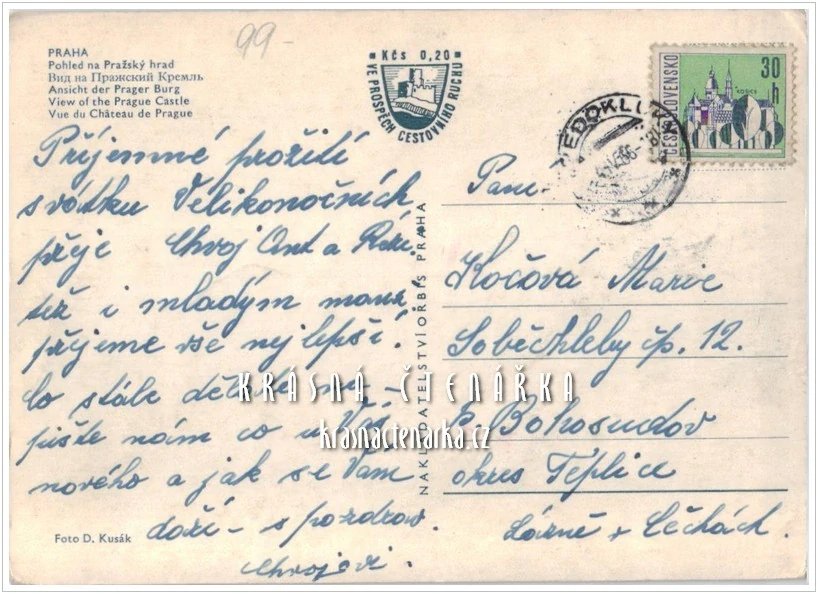 99-
PRAHA
Pohled na Pražský hrad
Вид на Пражский Кремль
Ansicht der Prager Burg
View of the Prague Castle
Vue du Château de Prague
Kčs 0,20
VE PROSPĚCH CESTOVNÍHO RUCHU
30 h
ČESKOSLOVENSKO
Příjemné prožití
svátku Velikonočních
přeje Chvoj Ant a
též i mladým
přejeme vše nejlepší.
Co stále děláte
pište nám co u Vás
nového a jak se Vám
daří - s pozdrav.
Chvojovi.
Foto D. Kusák
NAKLADATELSTVÍ ORBIS PRAHA
Paní
Kočová Marie
Soběchleby čp. 12.
Bohosudov
okres Teplice
Lázně v Čechách.
KRÁSNÁ ČTENÁŘKA
krasnactenarka.cz